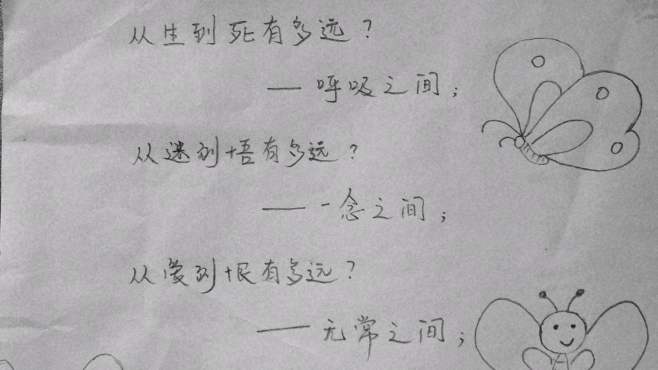 从生到死有多远？
——呼吸之间；
从迷到悟有多远？
——一念之间；
从爱到恨有多远？
——无常之间；